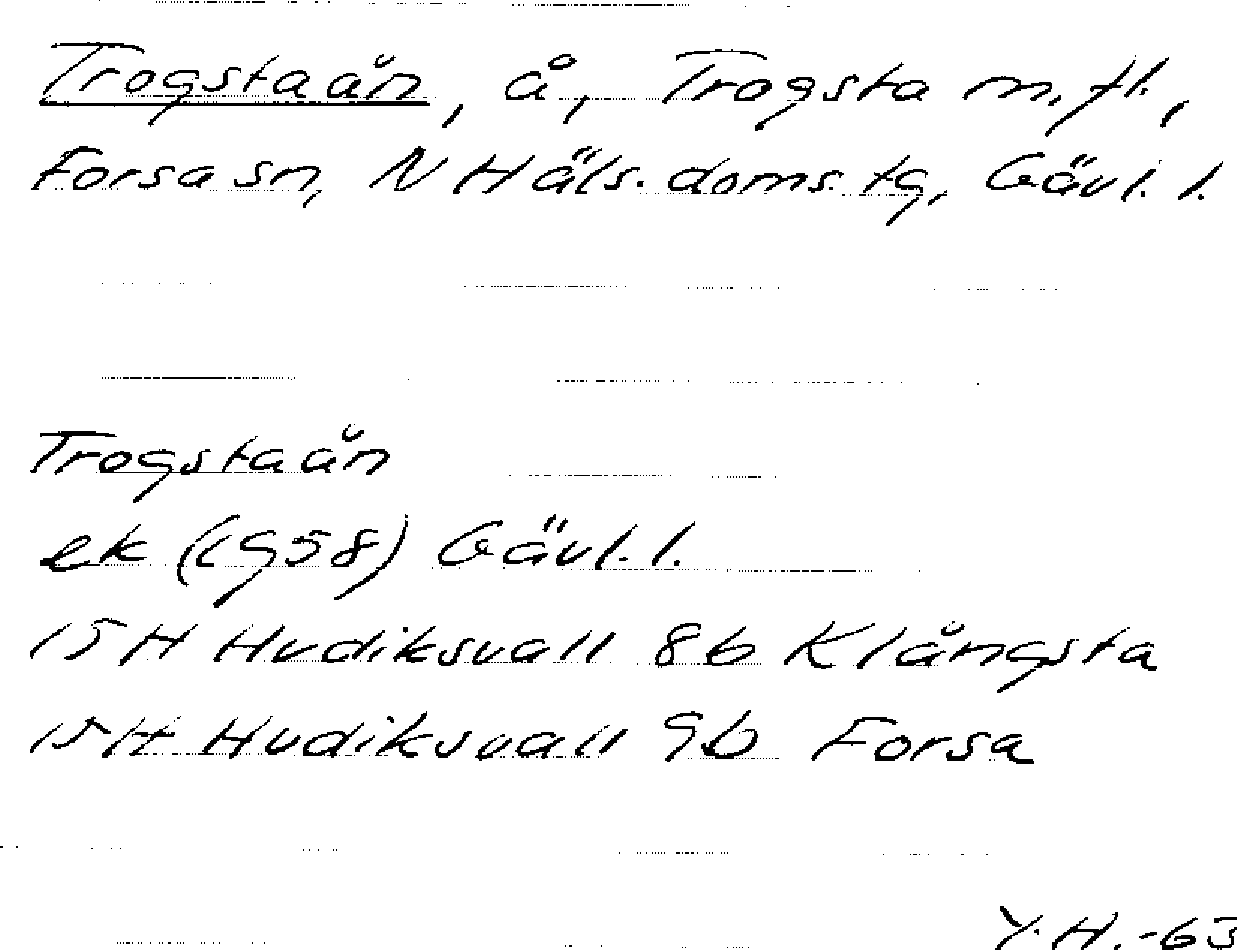 Trogstaån, å, Trogsta m.fl.,
Forsa sn, N Häls. doms. tg, Gävl. l.
Trogstaån
ek (1958) Gävl. l.
15 H Hudiksvall 8b Klångsta
15 H Hudiksvall 9b Forsa
Y.H.-63